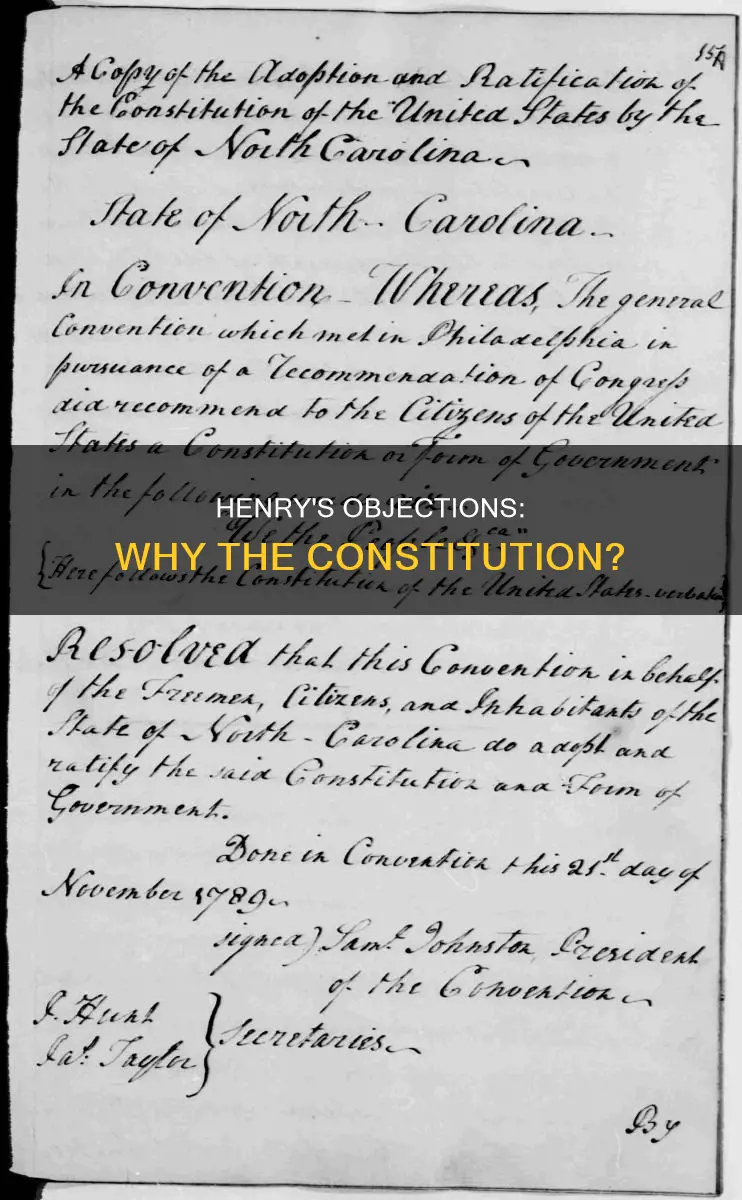 15A
A Copy of the Adoption and Ratification of
the Constitution of the United States by the
State of North Carolina
State of North - Carolina
In Convention - Whereas, The general
Convention which met in Philadelphia in
pursuance of a recommendation of Congress
did recommend to the Citizens of the United
States a Constitution or Form of Government
in the following
HENRY'S OBJECTIONS:
"We the People &ca"
WHY THE CONSTITUTION?
{Here follows the Constitution of the United States - verbatim}
Resolved that this Convention in behalf
of the Freemen, Citizens, and Inhabitants of the
State of North - Carolina do adopt and
ratify the said Constitution and Form of
Government.
Done in Convention this 21st day of
November 1789
signed) Saml Johnston, President
of the Convention
J. Hunt
Jas. Taylor } Secretaries
By